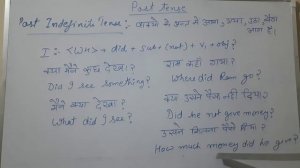 Past tense
Past Indefinite Tense :- वाक्य के अन्त में आया, गया, उठा, बैठा
आता है।
I :- <Wh> + did + Sub + (not) + V₁ + obj ?
क्या मैंने कुछ देखा?
Did I see something?
मैंने क्या देखा?
What did I see?
राम कहाँ गया?
Where did Ram go?
क्या उसने पैसे नहीं दिया?
Did he not give money?
उसने कितना पैसे दिया?
How much money did he give?